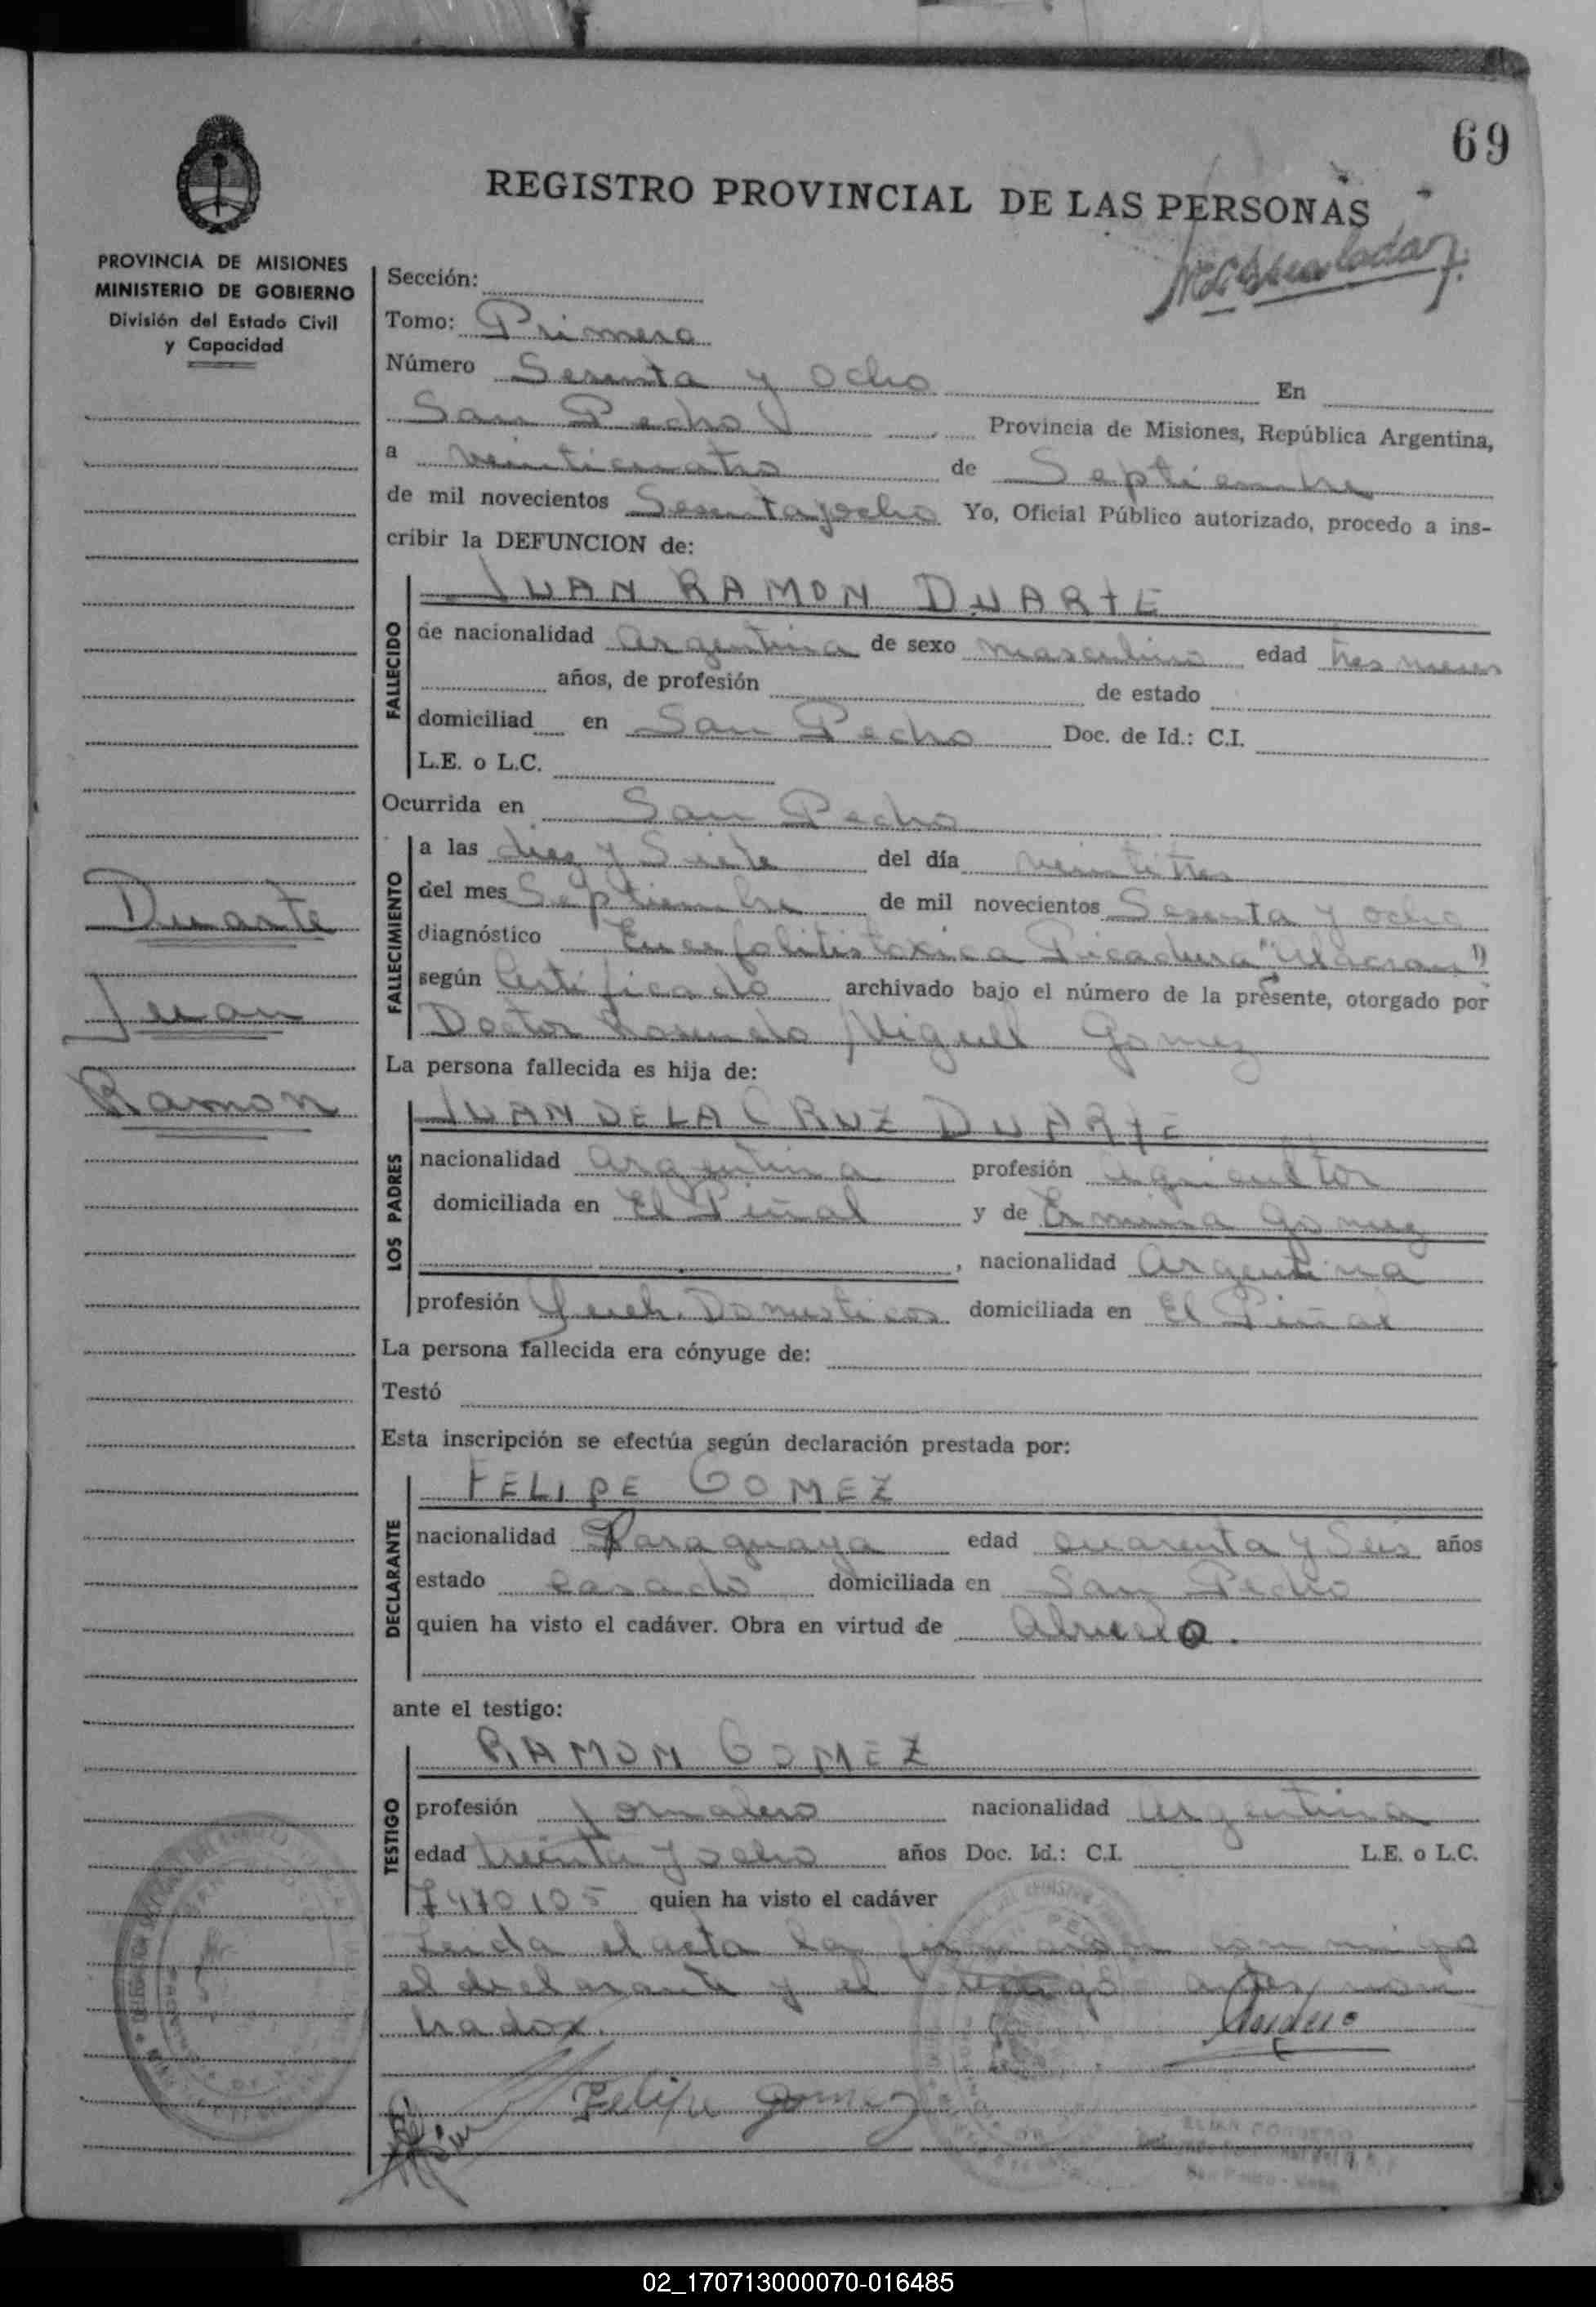 69
REGISTRO PROVINCIAL DE LAS PERSONAS
PROVINCIA DE MISIONES
MINISTERIO DE GOBIERNO
División del Estado Civil
y Capacidad
Sección:
Tomo: Primero
Número Sesenta y Ocho En
San Pedro Provincia de Misiones, República Argentina,
a veinticuatro de Septiembre
de mil novecientos Sesentayocho Yo, Oficial Público autorizado, procedo a ins-
cribir la DEFUNCION de:
JUAN RAMON DUARTE
FALLECIDO
de nacionalidad argentina de sexo masculino edad tres meses
años, de profesión de estado
domiciliad en San Pedro Doc. de Id.: C.I.
L.E. o L.C.
Ocurrida en San Pedro
FALLECIMIENTO
a las diez y Siete del día veintitres
del mes Septiembre de mil novecientos Sesenta y ocho
diagnóstico toxica Picadura "Alacran"
según Certificado archivado bajo el número de la presente, otorgado por
Doctor Rosendo Miguel Gomez
Duarte
Juan
Ramon
La persona fallecida es hija de:
JUAN DE LA CRUZ DUARTE
LOS PADRES
nacionalidad argentina profesión agricultor
domiciliada en El Piñal y de Ermina Gomez
, nacionalidad Argentina
profesión Queh. Domesticos domiciliada en El Piñal
La persona fallecida era cónyuge de:
Testó
Esta inscripción se efectúa según declaración prestada por:
FELIPE GOMEZ
DECLARANTE
nacionalidad Paraguaya edad cuarenta y Seis años
estado casado domiciliada en San Pedro
quien ha visto el cadáver. Obra en virtud de Abuelo.
ante el testigo:
RAMON GOMEZ
TESTIGO
profesión Jornalero nacionalidad argentina
edad treinta y ocho años Doc. Id.: C.I. L.E. o L.C.
7470105 quien ha visto el cadáver
Leida el acta la firmaron conmigo
el declarante y el testigo antes nom
brados.
Felipe Gomez
02_170713000070-016485